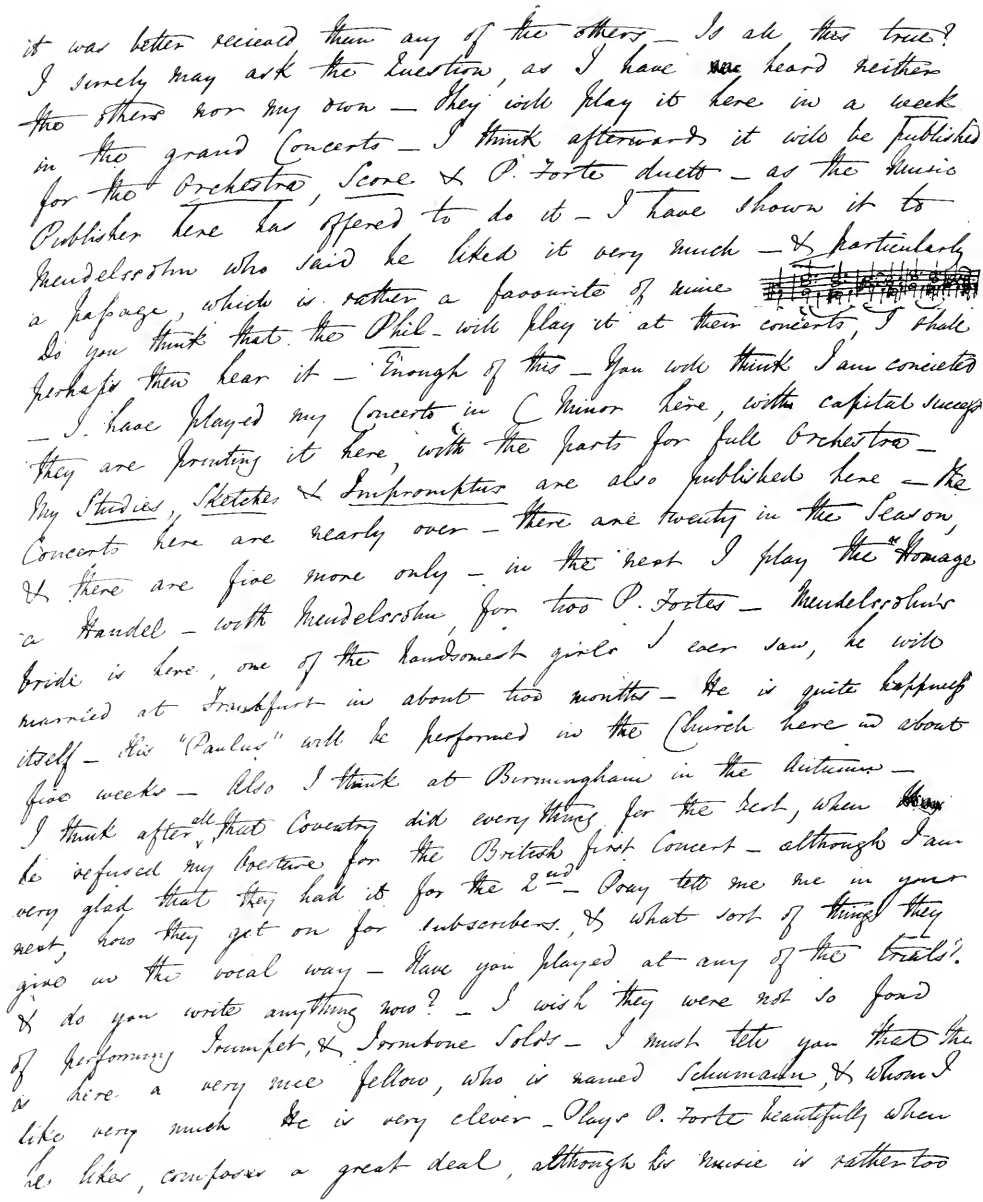 it was better recieved, than any of the others — Is all this true?
I surely may ask the Question, as I have heard neither
the others nor my own — They will play it here in a week
in the grand Concerts — I think afterwards it will be published
for the Orchestra, Score & P. Forte duett — as the Music
Publisher here has offered to do it — I have shown it to
Mendelssohn who said he liked it very much — & particularly
a passage, which is rather a favourite of mine
Do you think that the Phil — will play it at their concerts, I shall
perhaps then hear it — Enough of this — You will think I am concieted
— I have played my Concerto in C Minor here, with capital success
they are printing it here, with the parts for full Orchestra —
My Studies, Sketches & Impromptus are also published here — The
Concerts here are nearly over — there are twenty in the Season,
& there are five more only — in the next I play the "Homage
a Handel — with Mendelssohn, for two P. Fortes — Mendelssohn's
bride is here, one of the handsomest girls I ever saw, he will
married at Frankfurt in about two months — He is quite happiness
itself — His "Paulus" will be performed in the Church here in about
five weeks — Also I think at Birmingham in the Autumn —
I think after all that Coventry did every thing for the best, when
he refused my Overture for the British first Concert — although I am
very glad that they had it for the 2nd — Pray tell me me in your
next, how they get on for subscribers, & what sort of things they
give in the vocal way — Have you played at any of the trials?
& do you write anything now? — I wish they were not so fond
of performing Trumpet, & Trombone Solos — I must tell you that the
is here a very nice fellow, who is named Schumann, & whom I
like very much He is very clever — Plays P. Forte beautifully when
he likes, composes a great deal, although his music is rather too